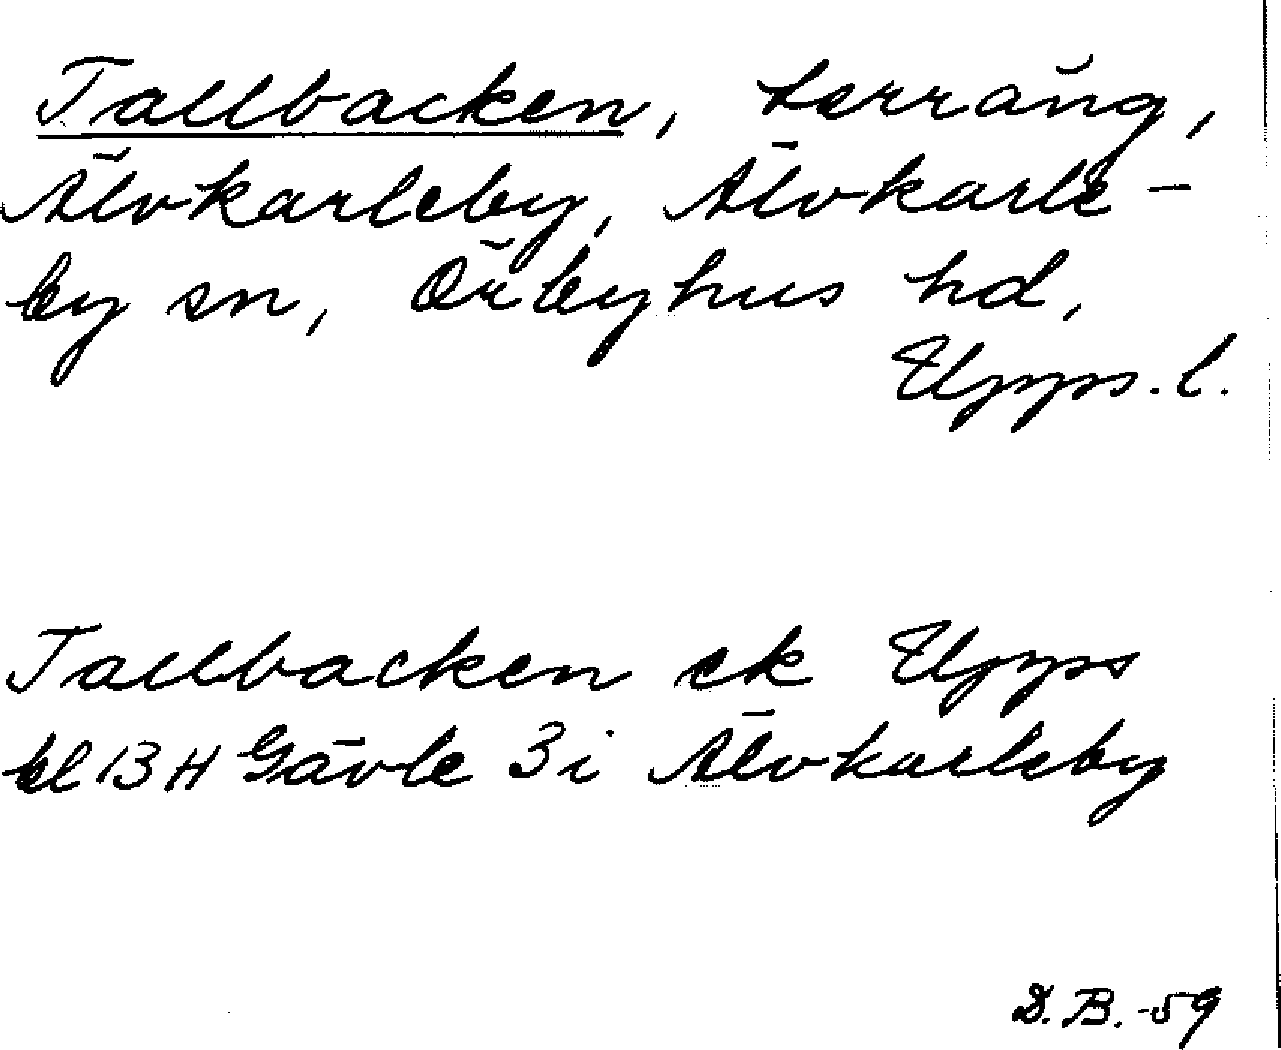 Tallbacken, terräng,
Älvkarleby, Älvkarle-
by sn, Örbyhus hd,
Upps. l.
Tallbacken ek Upps
bl 13 H Gävle 3 i Älvkarleby
D. B. -59